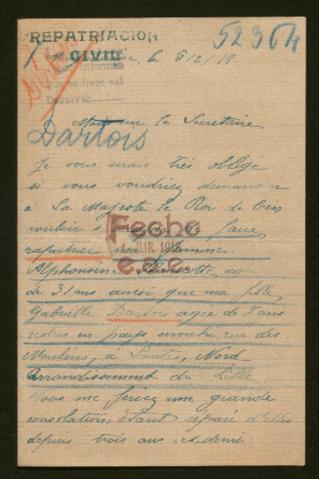 REPATRIACION
CIVIL
52364
le 6/2/18
Monsieur le Secretaire
Dartois
Je vous serais très obligé
si vous voudriez demander
à Sa Majesté le Roi de bien
vouloir faire
rapatrier ma femme
Alphonsine agée
de 31 ans ainsi que ma fille
Gabrielle Dartois agée de 8 ans
restées en pays envahi, rue des
Moulins, à Santes, Nord
Arrondissement de Lille
Vous me feriez une grande
consolation, étant séparé d'elles
depuis trois ans et demi
Fecha
MAR. 1918